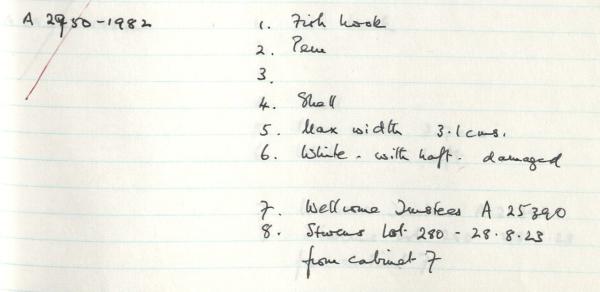 A 2950-1982
1. Fish hook
2. Peru
3.
4. Shell
5. Max width 3.1 cms.
6. White. with haft. damaged
7. Wellcome Trustees A 25390
8. Stevens Lot 280 - 28.8.23
from cabinet 7